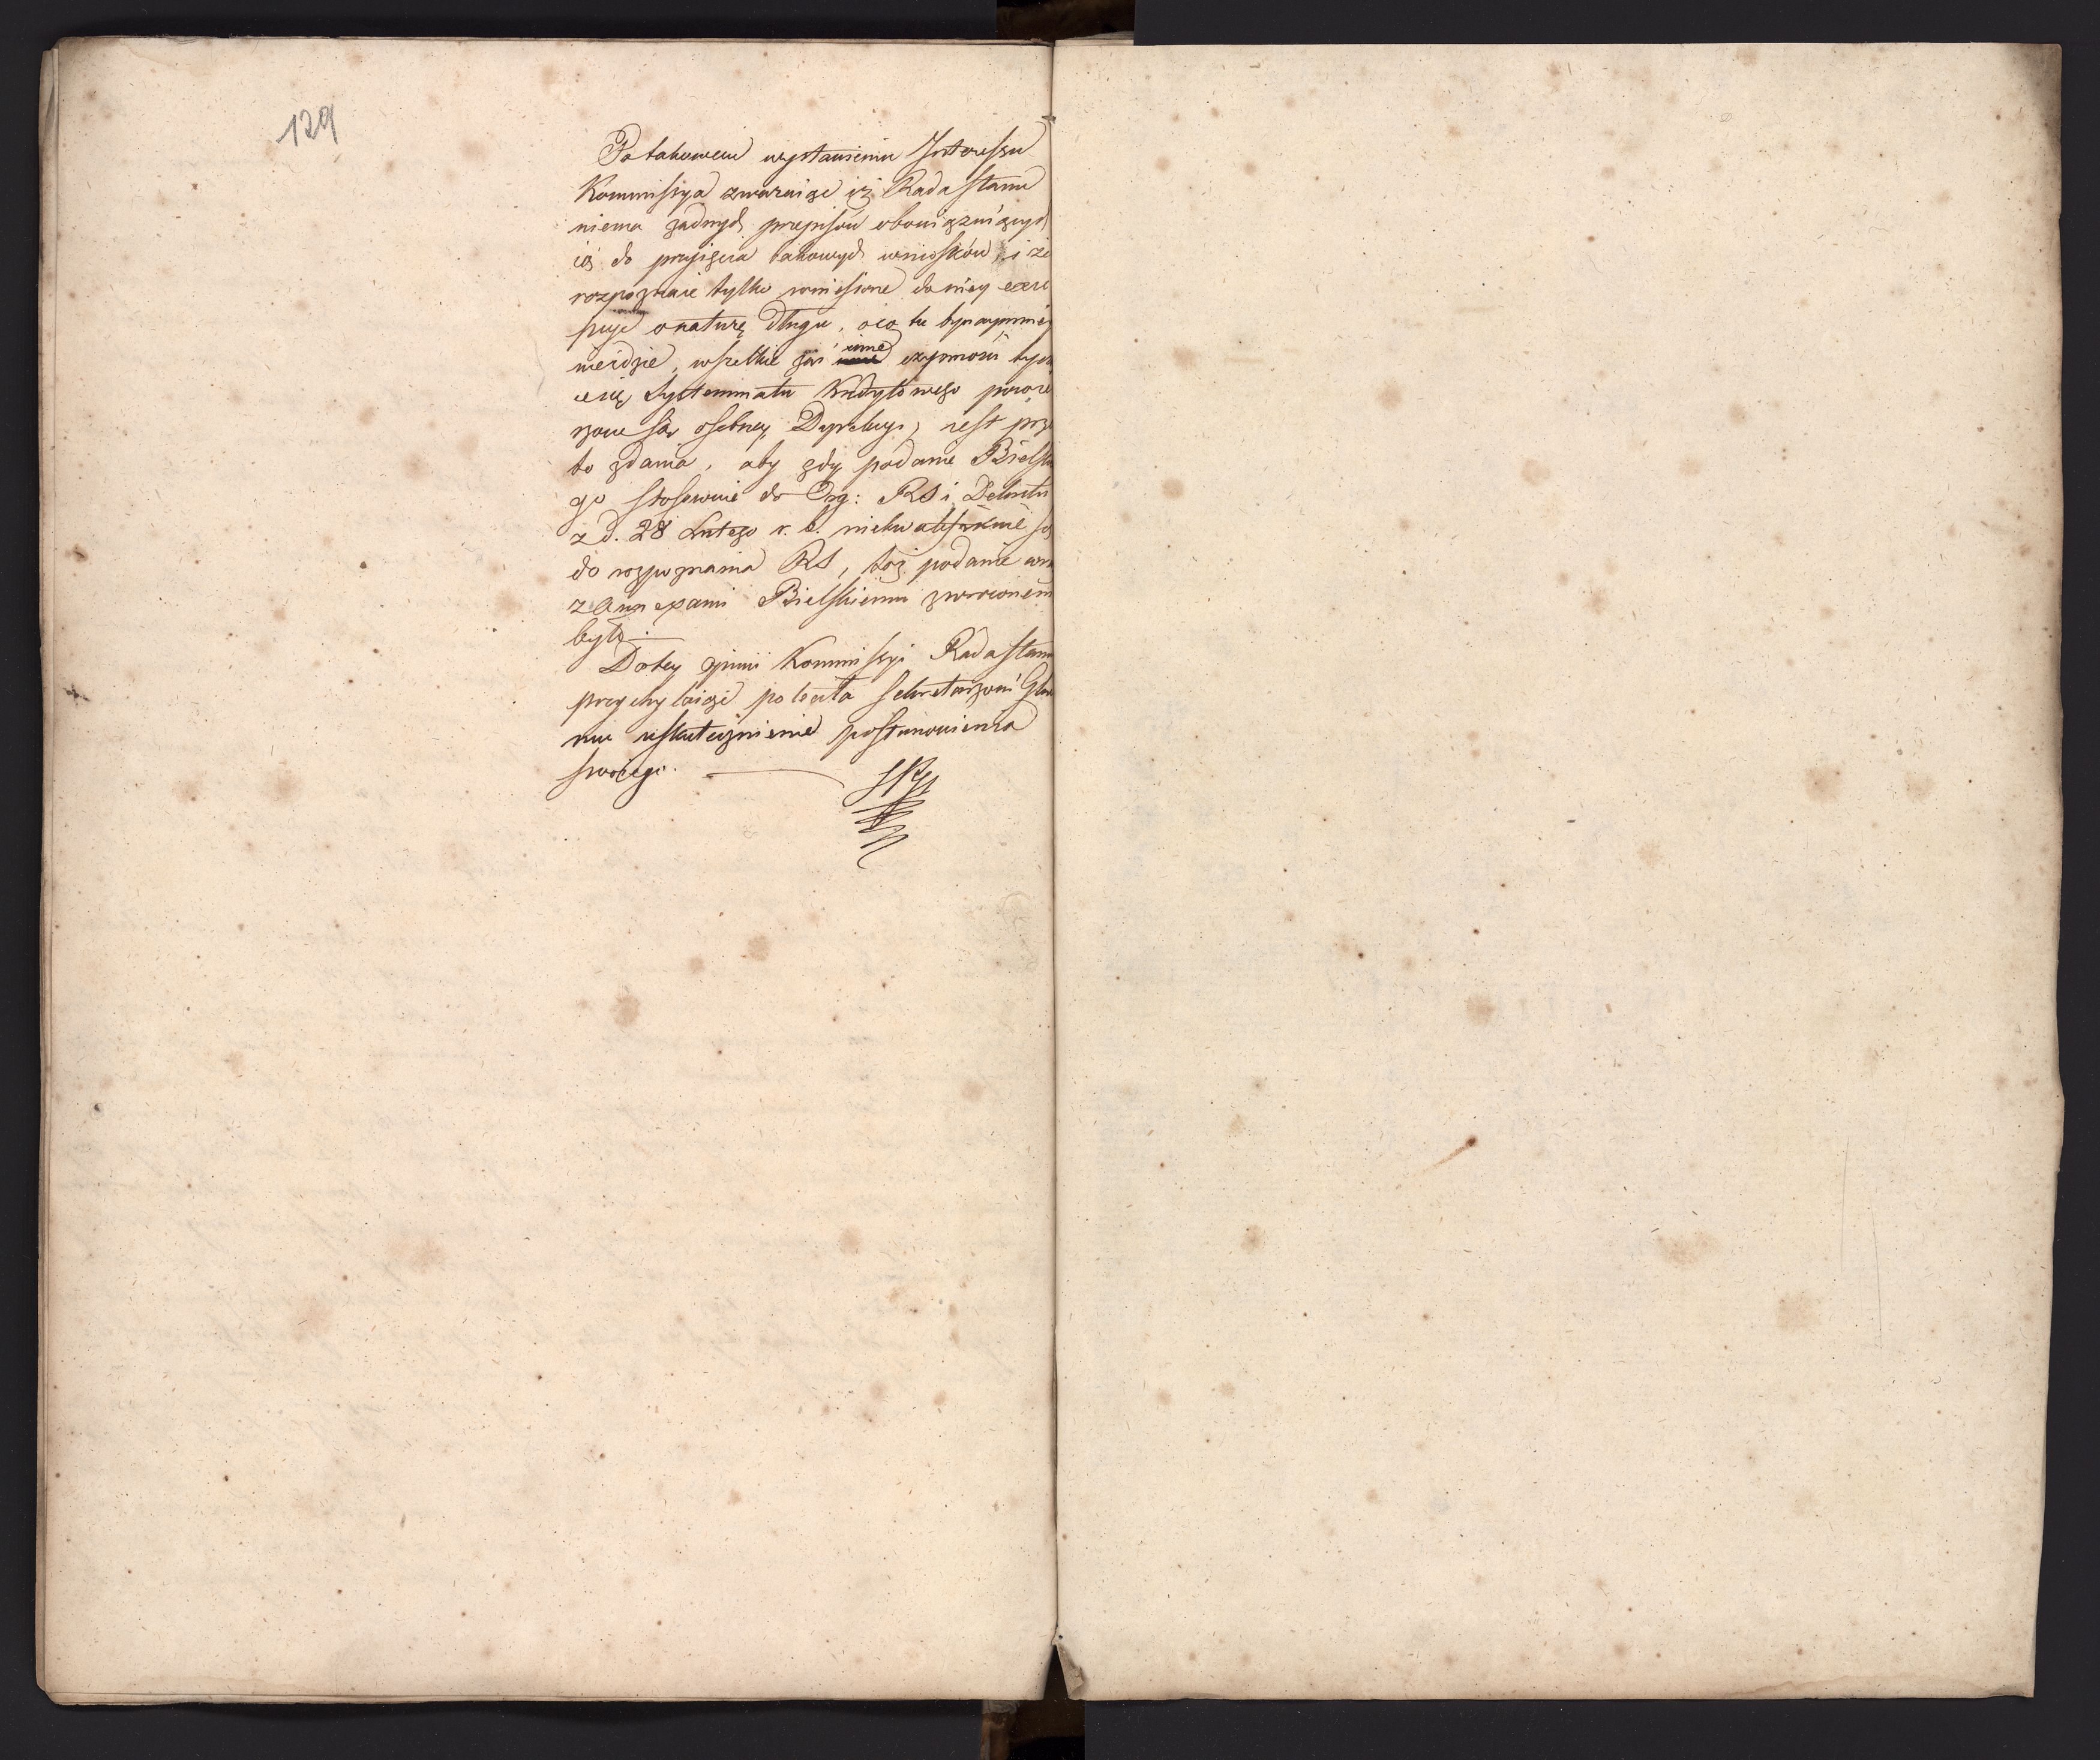 129
Po takowem wystawieniu Interessu
Kommissya zważaiąc iż Rada Stanu
niema żadnych przepisów obowiązuiących
ią do przyięcia takowych wniosków, i że
rozpoznaie tylko wniesione do niéy exce
pcye o naturę długu, o co tu bynaymniéy
nieidzie, wszelkie zaś inne czynności tycz
ące się Systemmatu Kredytowego powie
rzone są osobney Dyrekcyi, iest prze
to zdania, aby gdy podanie Bielskie
go stosownie do Org: RS i Dekretu
z d. 28 Lutego r. b. niekwalifikuie się
do rozpoznania RS, toż podanie wraz
z Annexami Bielskiemu zwrócionem
było.
Do tey opinii Kommissyi Rada Stanu
przychylaiąc się poleciła Sekretarzowi Głw
mu uskutecznienie postanowienia
swoiego.